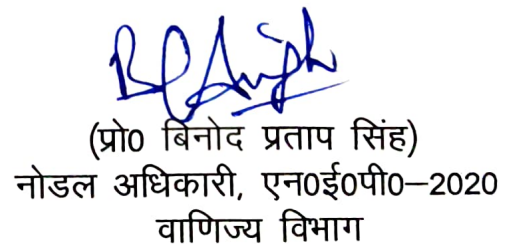 BP Singh
(प्रो0 बिनोद प्रताप सिंह)
नोडल अधिकारी, एन0ई0पी0–2020
वाणिज्य विभाग